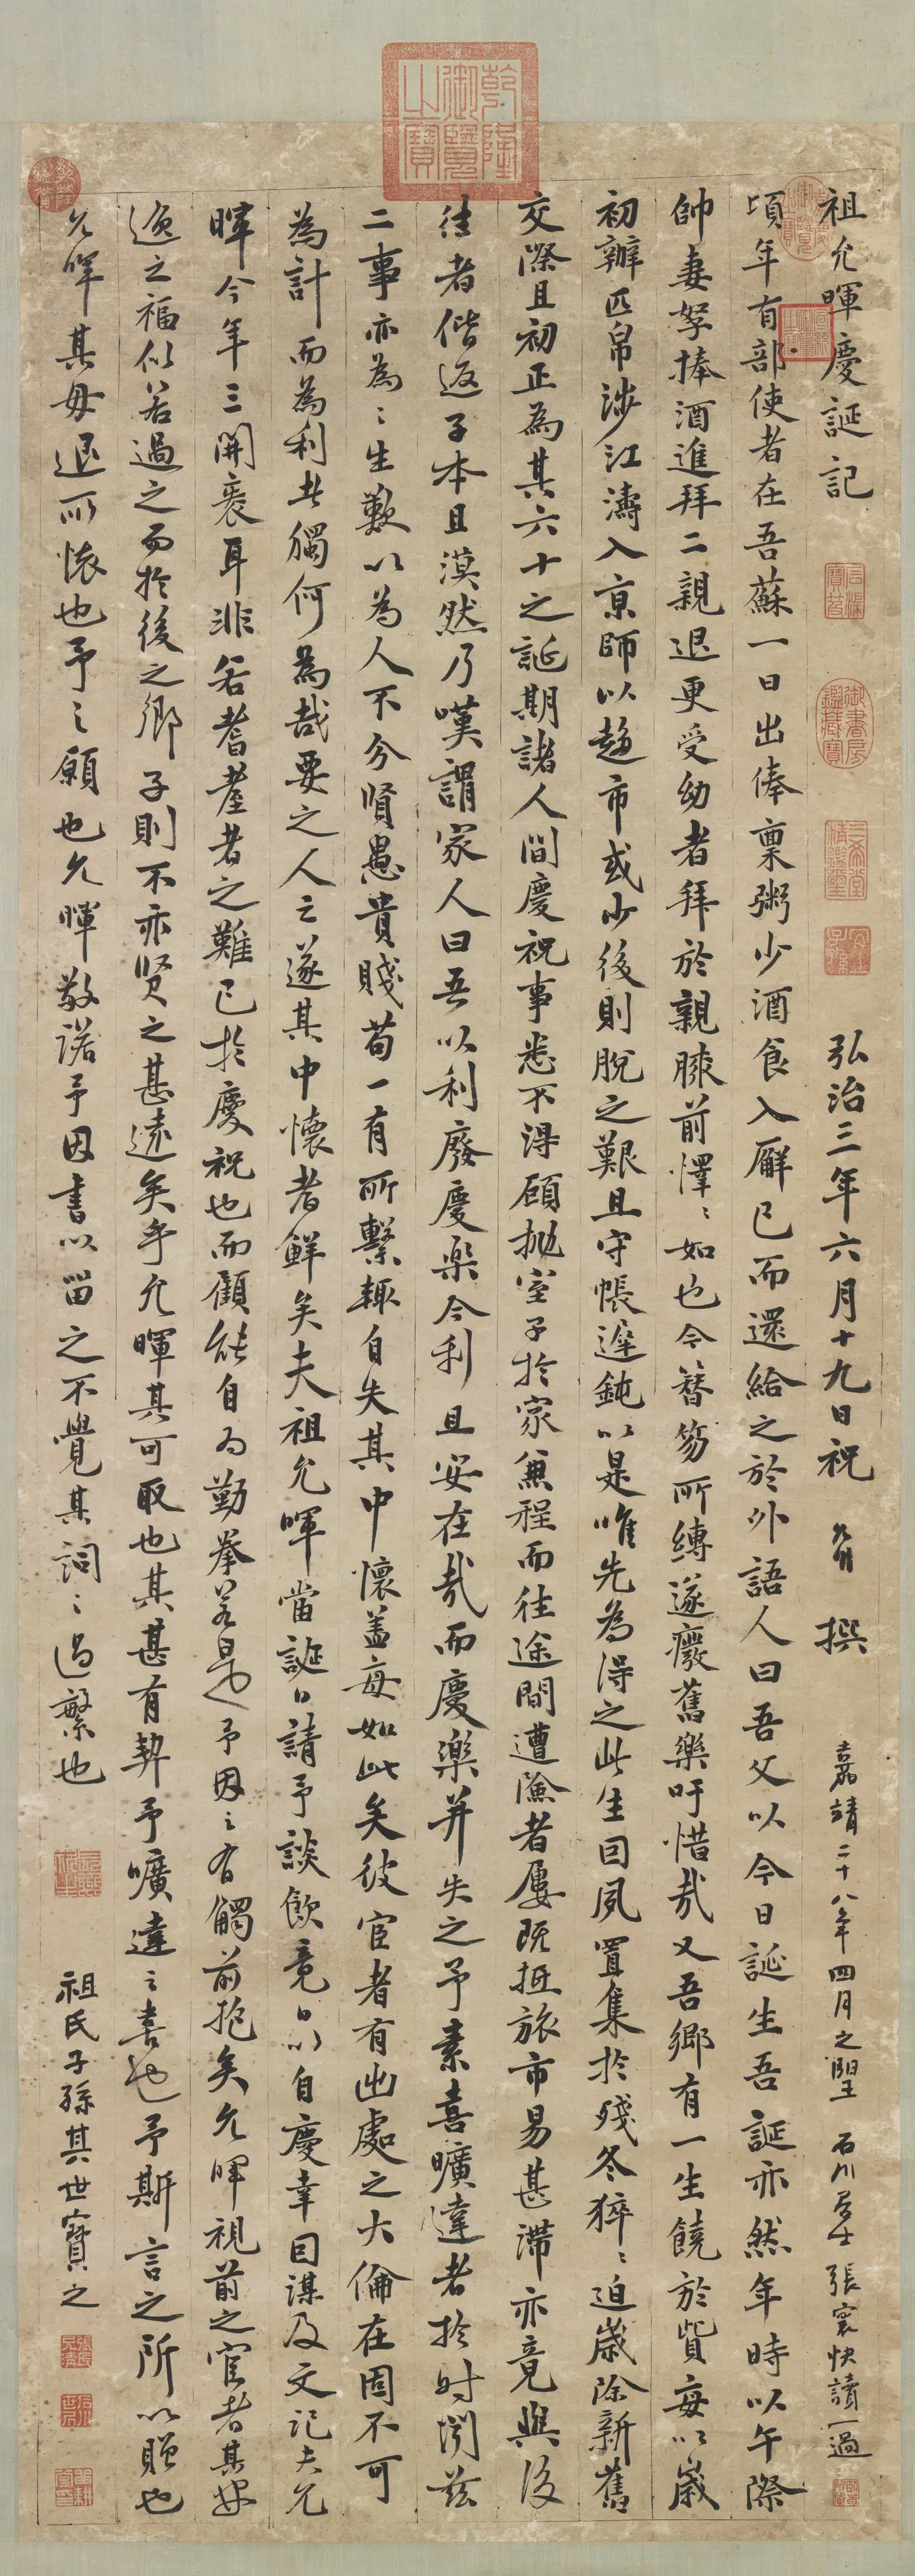 祖允暉慶誕記
弘治三年六月十九日祝 撰
嘉靖二十八年四月之望 石川居士張寰快讀一過
頃年有部使者在吾蘇一日出俸稟粥少酒食入廨已而還給之於外語人曰吾父以今日誕生吾誕亦然年時以午際
帥妻孥捧酒進拜二親退更受幼者拜於親膝前懌〻如也今簪笏所縛遂癈舊樂吁惜哉又吾鄉有一生饒於貲每以歲
初辦匹帛涉江濤入京師以趍市或少後則脫之艱且守帳遲鈍以是唯先為淂之此生囙夙置集於殘冬猝〻迫歲除新舊
交際且初正為其六十之誕期諸人間慶祝事悉不淂顧拋室子於家兼程而往途間遭險者屢既抵旅市易甚滯亦竟與後
徃者偕返子本且漠然乃嘆謂家人曰吾以利廢慶樂今利且安在哉而慶樂并失之予素喜曠達者於时閔茲
二事亦為〻生歎以為人不分賢愚貴賤苟一有所繫輒自失其中懷盖每如此矣彼宦者有出處之大倫在固不可
為計而為利者獨何為哉要之人之遂其中懷者鮮矣夫祖允暉當誕日請予談飲竟日以自慶幸囙謀及文記夫允
暉今年三開袠耳非若耆耋者之難已於慶祝也而顧能自为勤拳若是也予因之有觸前抱矣允暉視前之宦者其安
逸之福似若過之而於後之鄉子則不亦贤之甚遠矣乎允暉其可取也其甚有契予曠達之喜也予斯言之所以贈也
允暉其毋退所懷也予之願也允暉敬諾予因書以留之不覺其詞〻過繁也
祖氏子孫其世寶之
乾隆御覽之寶
石渠寶笈
御書房鑑藏寶
三希堂精鑑璽
宜子孫